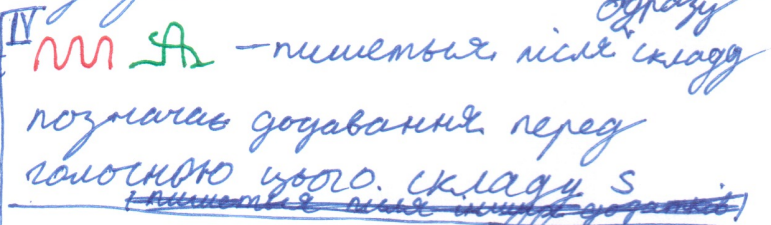 одразу
IV – пишеться після складу
позначає додавання перед
голосною цього складу s
(пишеться після інших додатків)